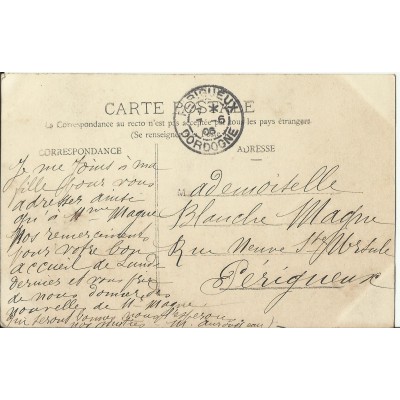 CARTE POSTALE
La Correspondance au recto n'est pas acceptée par tous les pays étrangers
(Se renseigner
PERIGUEUX
DORDOGNE
CORRESPONDANCE
ADRESSE
Je me joins à ma
fille pour vous
adresser ainsi
qu'à Mme Magne
nos remerciements
pour votre bon
accueil de Lundi
dernier et vous prie
de nous donner des
nouvelles de M Magne
qui seront bonnes nous l'espérons
Mademoiselle
Blanche Magne
Rue Neuve Ste Ursule
Périgueux